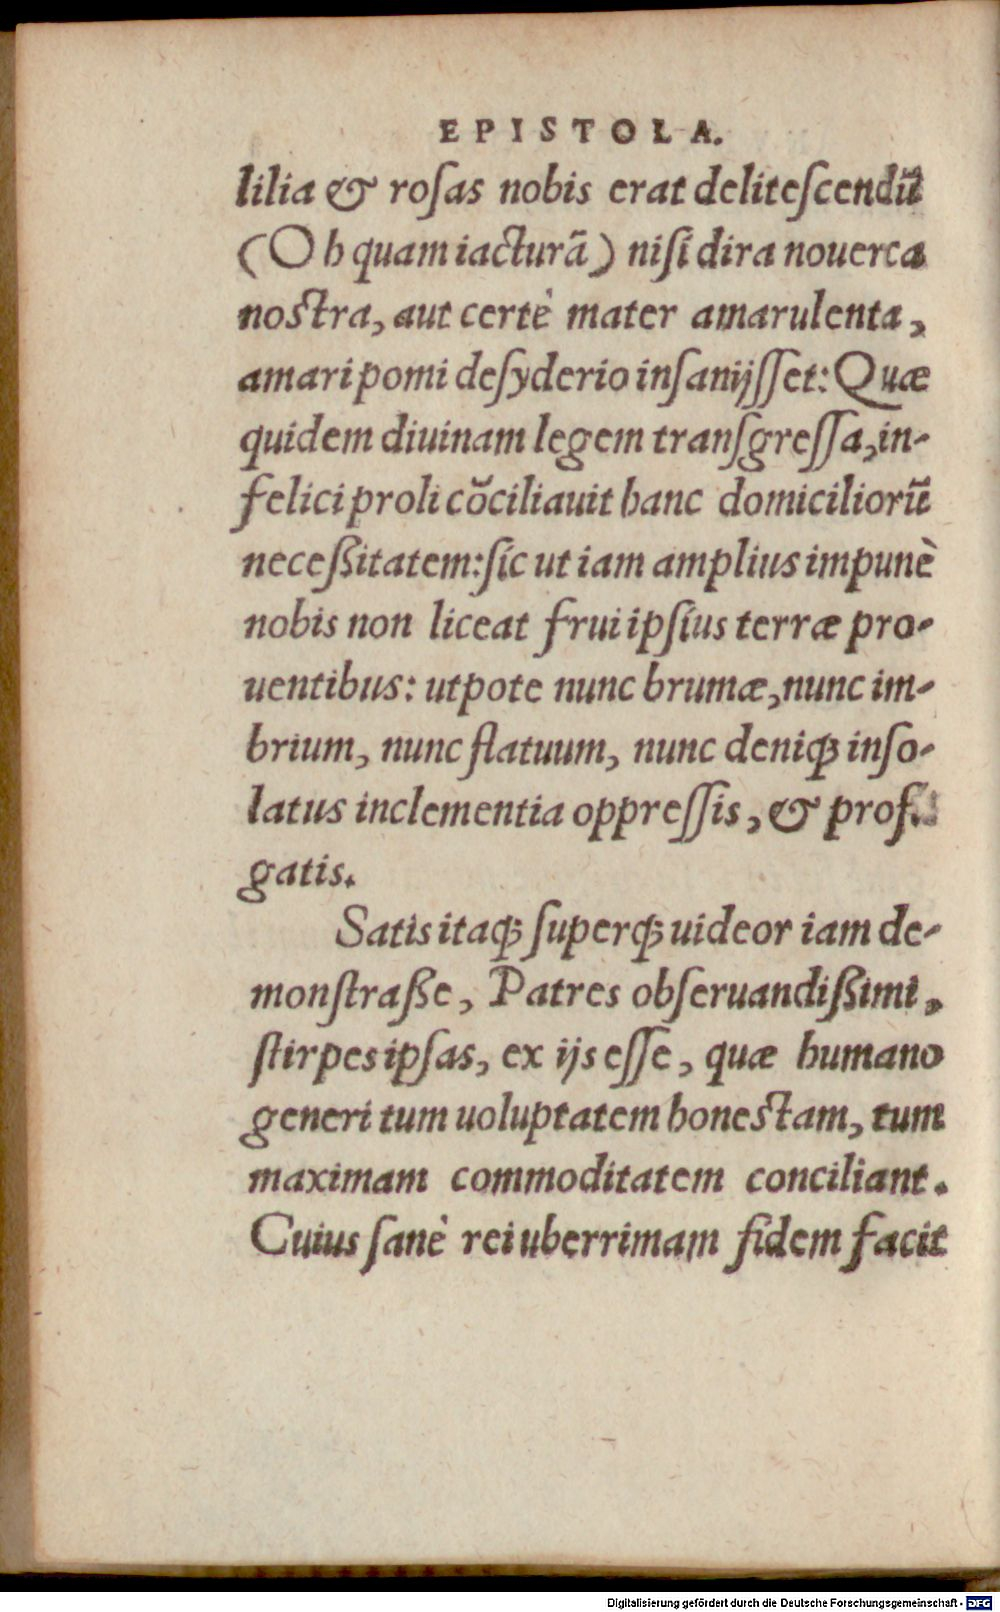 EPISTOLA.
lilia & roſas nobis erat deliteſcendũ
(Oh quam iacturã) niſi dira nouerca
noſtra, aut certè mater amarulenta,
amari pomi deſyderio inſanijſſet: Quæ
quidem diuinam legem tranſgreſſa, in-
felici proli cõciliauit hanc domiciliorũ
neceßitatem: ſic ut iam amplius impunè
nobis non liceat frui ipſius terræ pro-
uentibus: utpote nunc brumæ, nunc im-
brium, nunc flatuum, nunc deniq; inſo-
latus inclementia oppreſſis, &
gatis.
Satis itaq; ſuperq; uideor iam de-
monſtraße, Patres obſeruandißimi,
ſtirpes ipſas, ex ijs eſſe, quæ humano
generi tum uoluptatem honeſtam, tum
maximam commoditatem conciliant.
Cuius ſanè rei uberrimam fidem facit
Digitalisierung gefördert durch die Deutsche Forschungsgemeinschaft - DFG